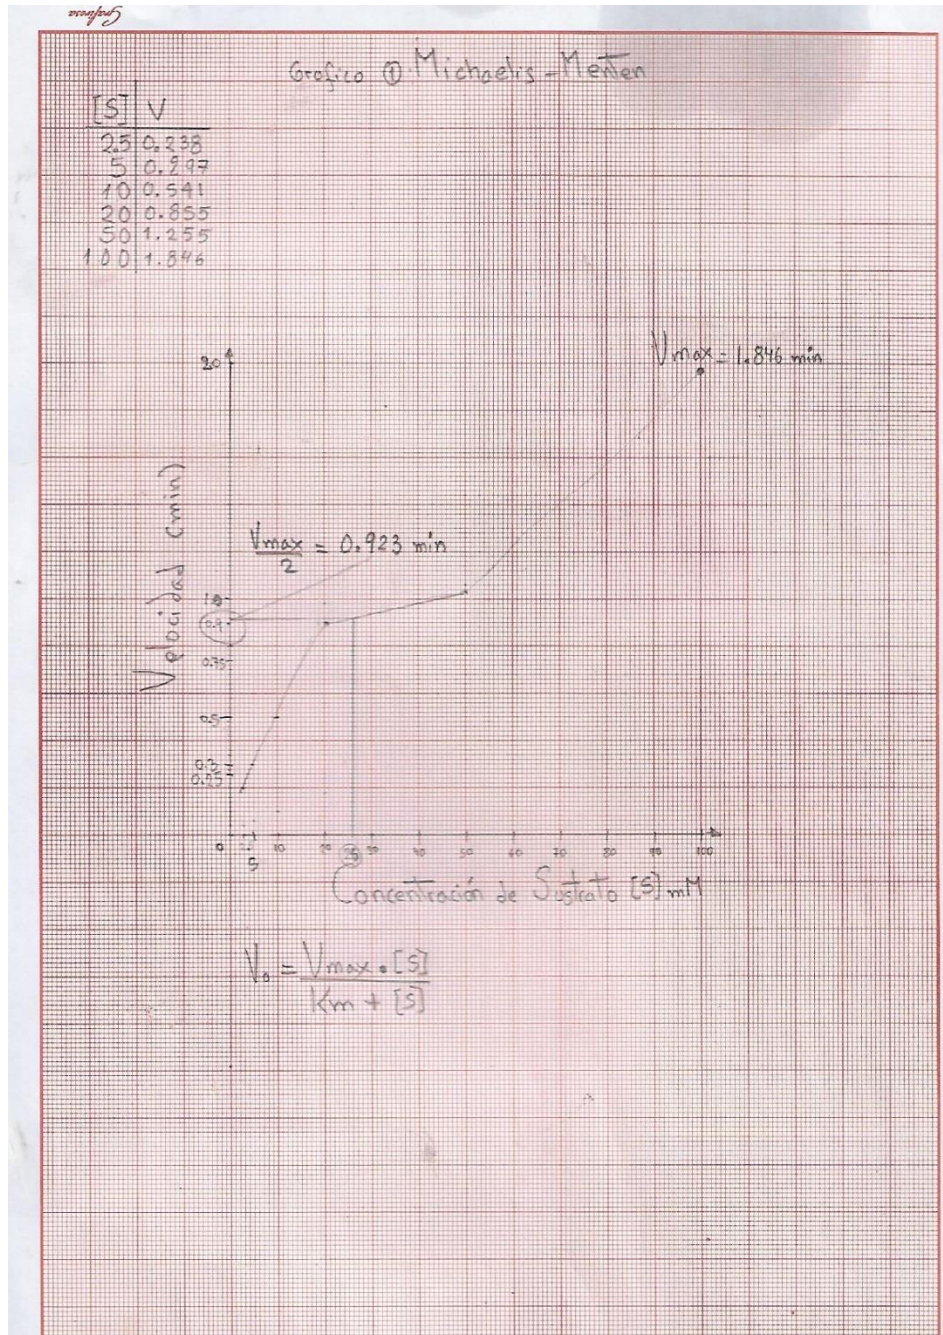 Grafinorma
Grafico ① Michaelis - Menten
[S] V
2.5 0.238
5 0.297
10 0.541
20 0.855
50 1.255
100 1.846
Vmax = 1.846 min
20
Velocidad (min)
Vmax/2 = 0.923 min
1.0
0.9
0.75
0.5
0.3
0.25
0 5 10 20 26 30 40 50 60 70 80 90 100
Concentración de Sustrato [S] mM
V₀ = Vmax • [S]
Km + [S]